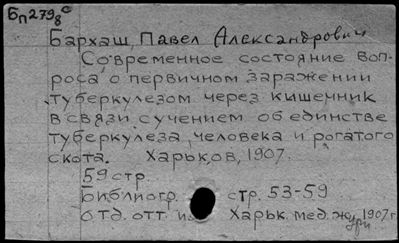 Бп 279 8 с
Бархаш, Павел Александрович
Современное состояние воп-
роса о первичном заражении
туберкулезом через кишечник
в связи с учением об единстве
туберкулеза человека и рогатого
скота. Харьков, 1907.
59 стр.
Библиогр. стр. 53-59
отд. отт. из Харьк. мед. журн. 1907 г.